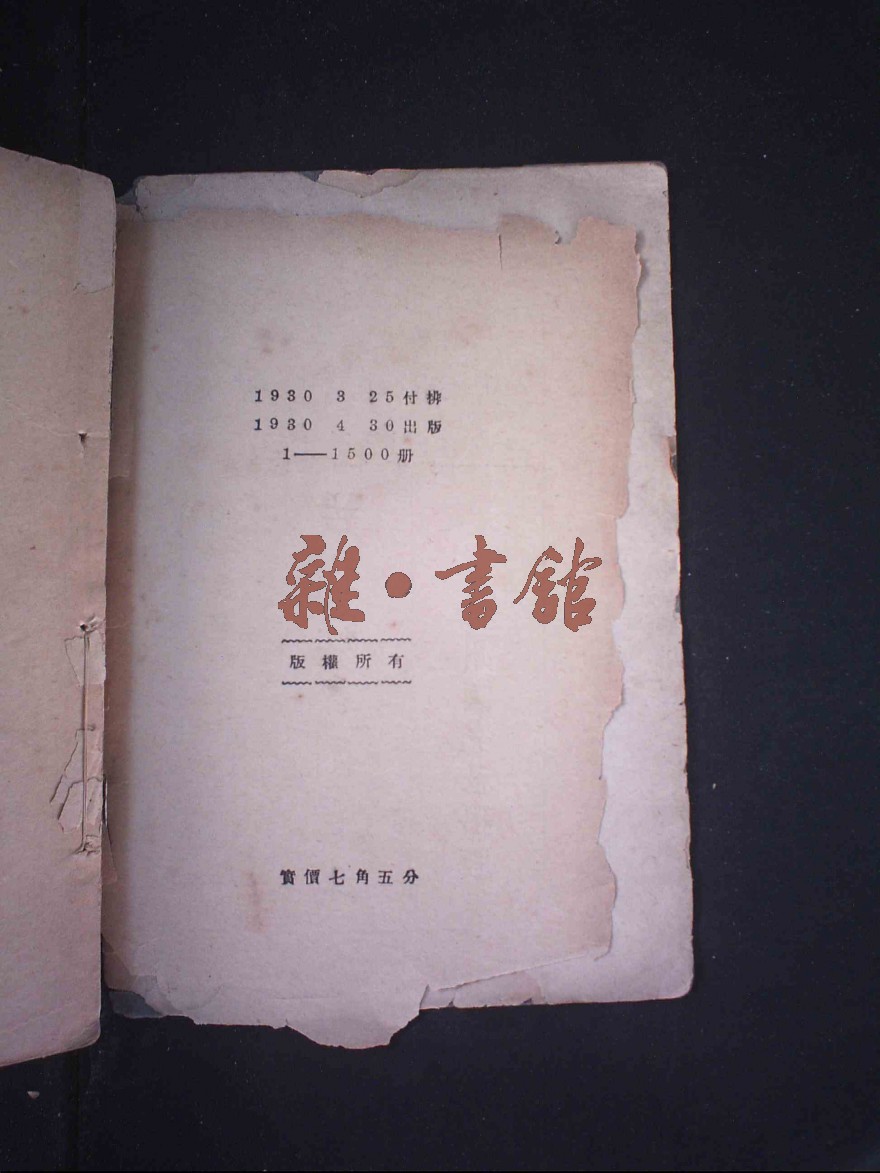 1930 3 25付排
1930 4 30出版
1——1500册
雜·書館
版權所有
實價七角五分